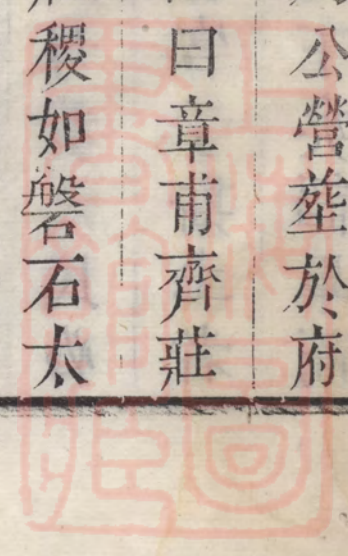 公營葬於府
曰章甫齊莊
稷如磐石太